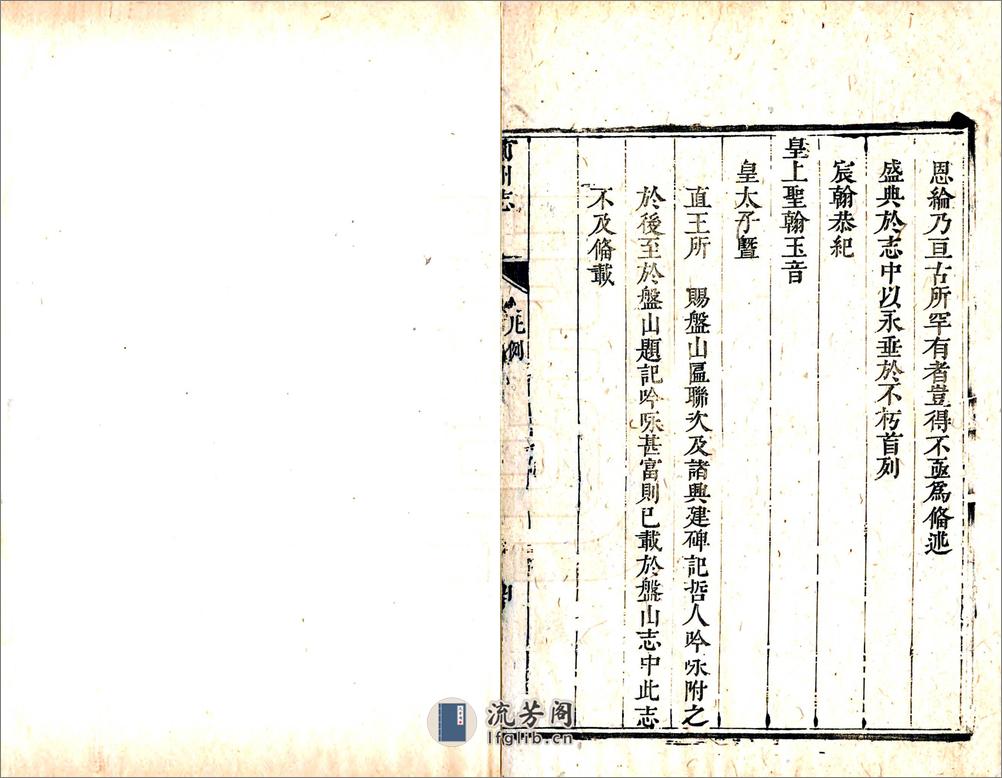 恩綸乃亘古所罕有者豈得不亟為脩述
盛典於志中以永垂於不朽首列
宸翰恭紀
皇上聖翰玉音
皇太子暨
直王所　賜盤山匾聯次及諸興建碑記哲人吟咏附之
於後至於盤山題記吟咏甚富則已載於盤山志中此志
不及脩載
州志
凡例
流芳阁
lfglib.cn